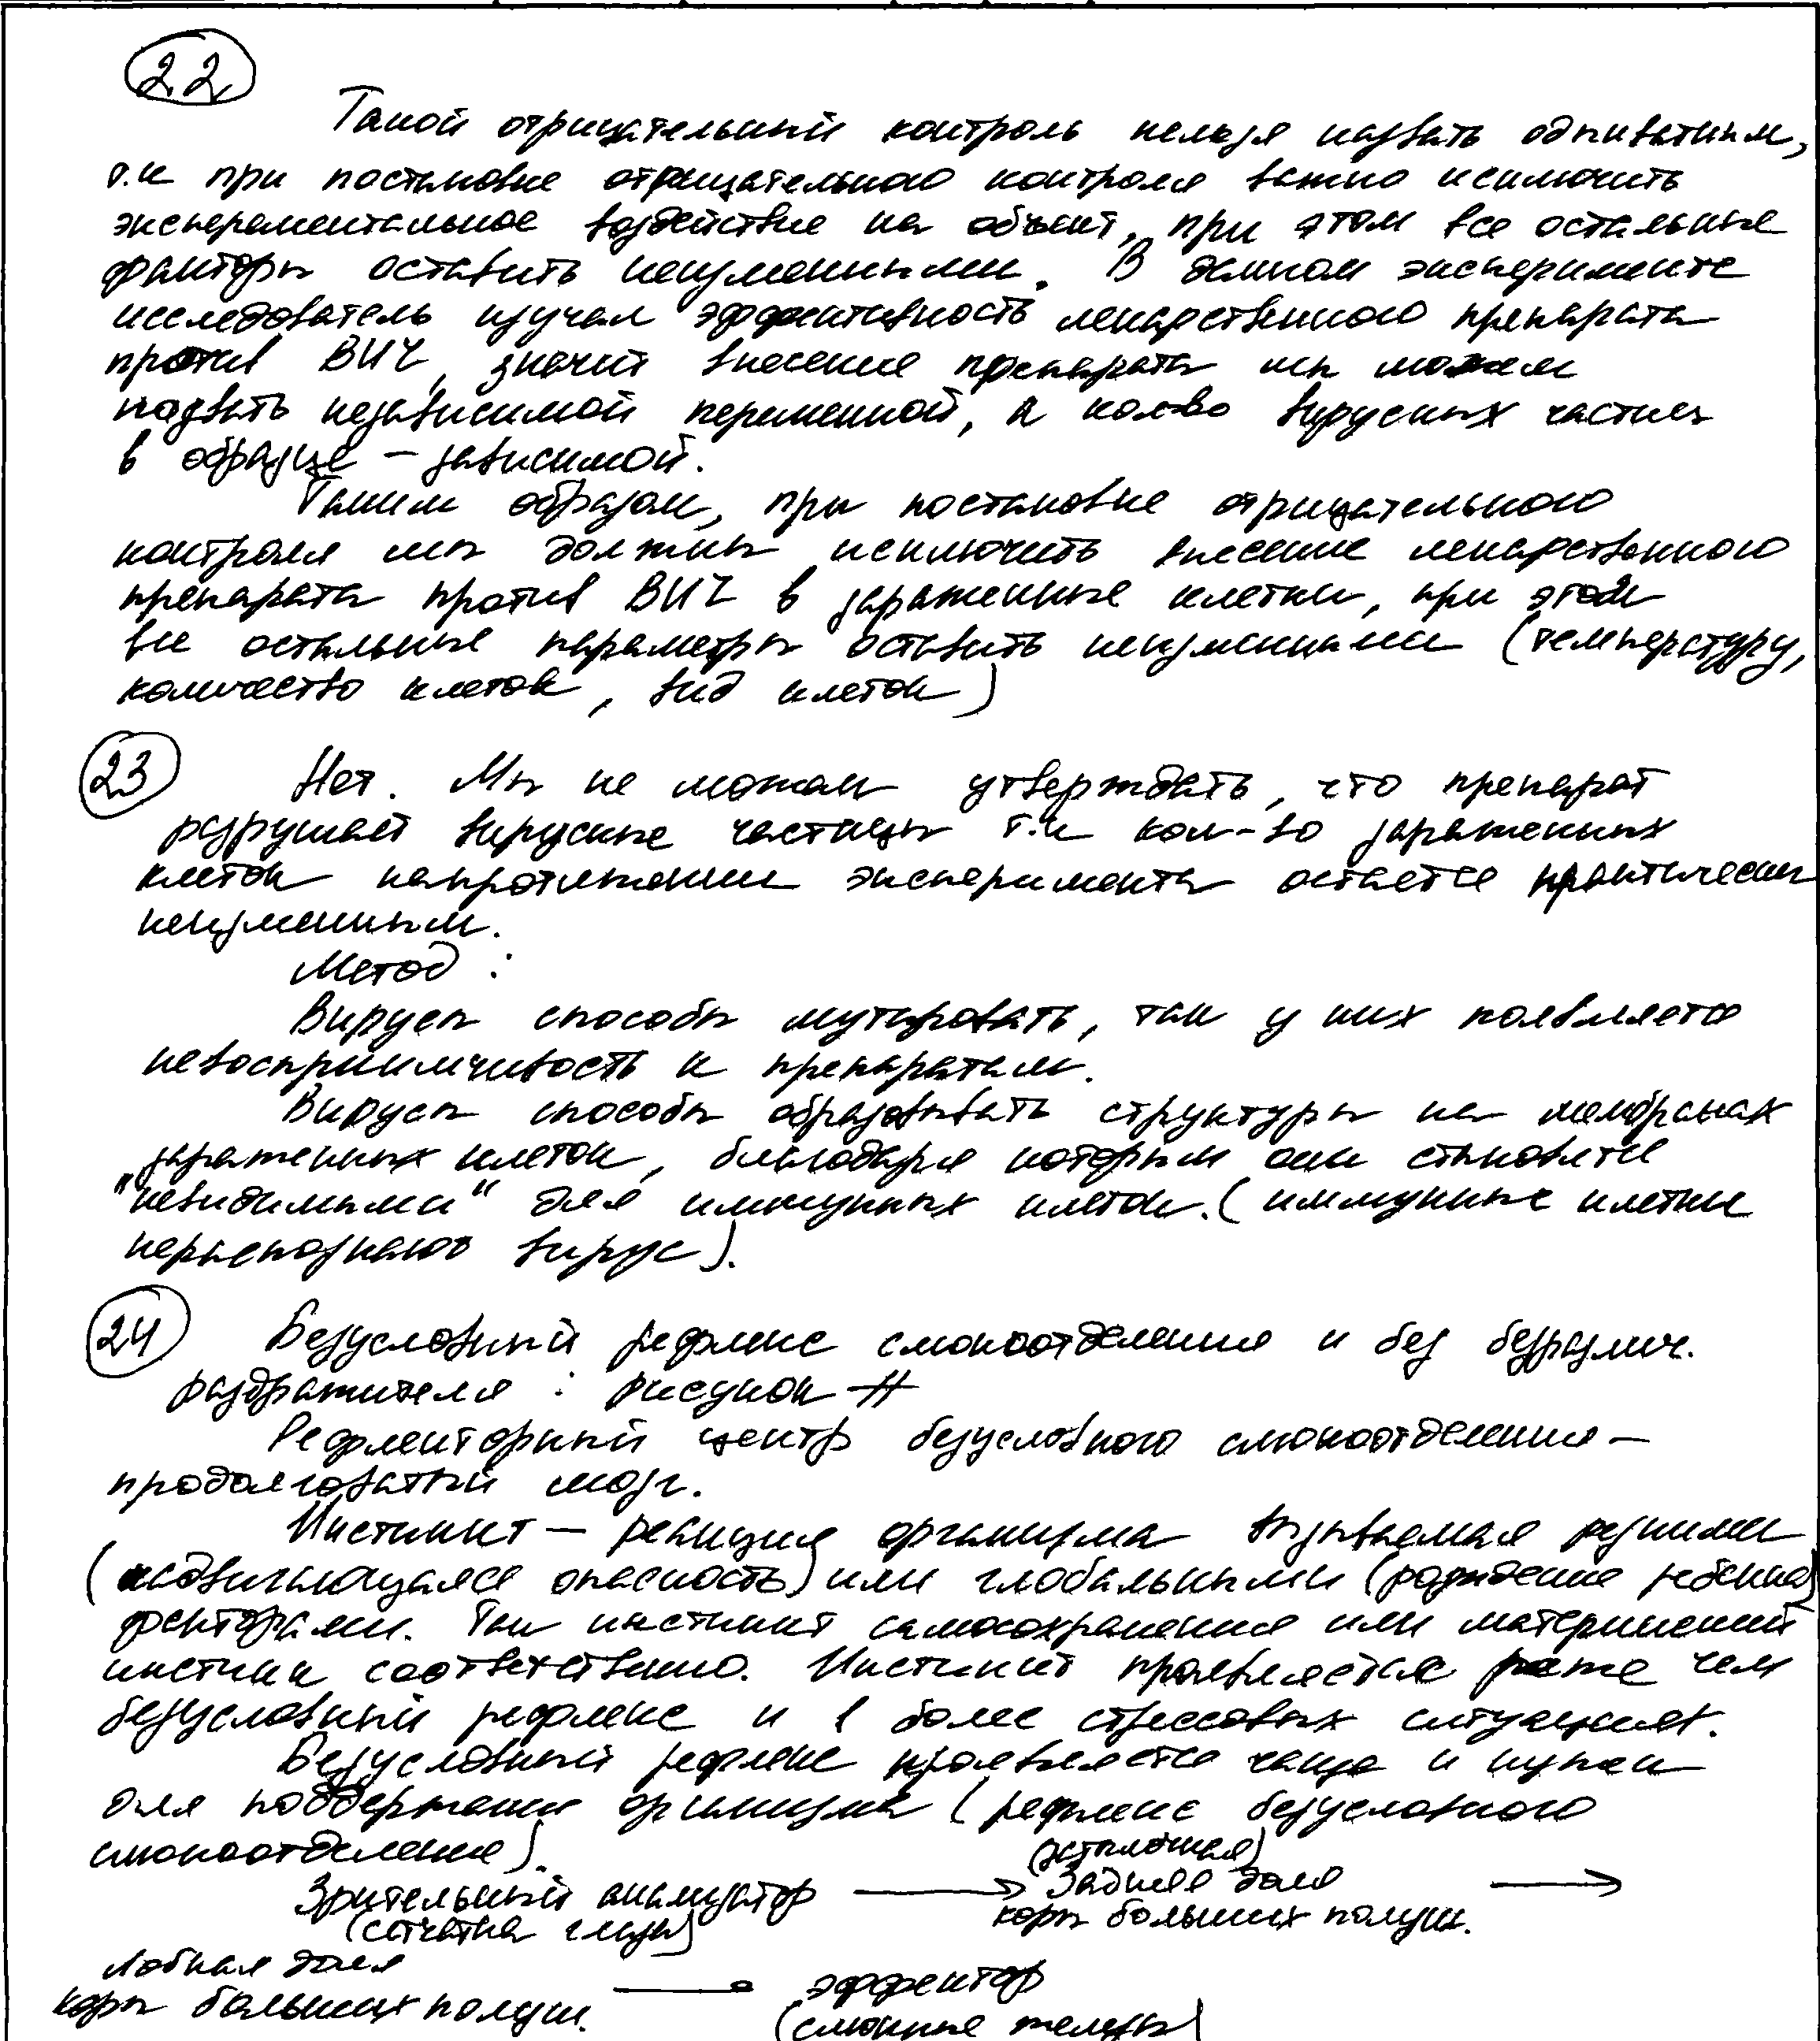 22
Такой отрицательный контроль нельзя назвать адекватным,
т.к при постановке отрицательного контроля важно исключить
экспераментальное воздействие на объект, при этом все остальные
факторы оставить неизменными. В данном эксперименте
исследователь изучал эффективность лекарственного препарата
против ВИЧ, значит внесение препарата мы можем
назвать независимой переменной, а кол-во вирусных частиц
в образце – зависимой.
Таким образом, при постановке отрицательного
контроля мы должны исключить внесение лекарственного
препарата против ВИЧ в зараженные клетки, при этом
все остальные параметры оставить неизменными (температуру,
количество клеток, вид клеток)
23 Нет. Мы не можем утверждать, что препарат
разрушает вирусные частицы т.к кол-во зараженных
клеток напротяжении эксперимента остаётся практически
неизменным.
Метод :
Вирусы способы мутировать, так у них появляется
невосприимчивость к препаратам.
Вирусы способы образовывать структуры на мембранах
зараженных клеток, благодаря которым они становятся
"невидимыми" для иммунных клеток. (иммунные клетки
нераспознают вирус).
24 Безусловный рефлекс слюноотделения и без безразлич.
раздражителя : рисунок А
Рефлекторный центр безусловного слюноотделения –
продолговатый мозг.
Инстинкт – реакция организма вызываемая резкими
(надвигающаяся опасность) или глобальными (рождение ребенка)
факторами. Так инстинкт самосохранения или материнский
инстинк соответственно. Инстинкт проявляется реже чем
безусловный рефлекс и в более стрессовых ситуациях.
Безусловный рефлекс проявляется чаще и нужен
для поддержания организма (рефлекс безусловного
слюноотделения).
(затылочная)
Зрительный анализатор → Задняя доля →
(сетчатка глаза) коры больших полуш.
Лобная доля → эффектор
коры больших полуш. (слюнные железы)